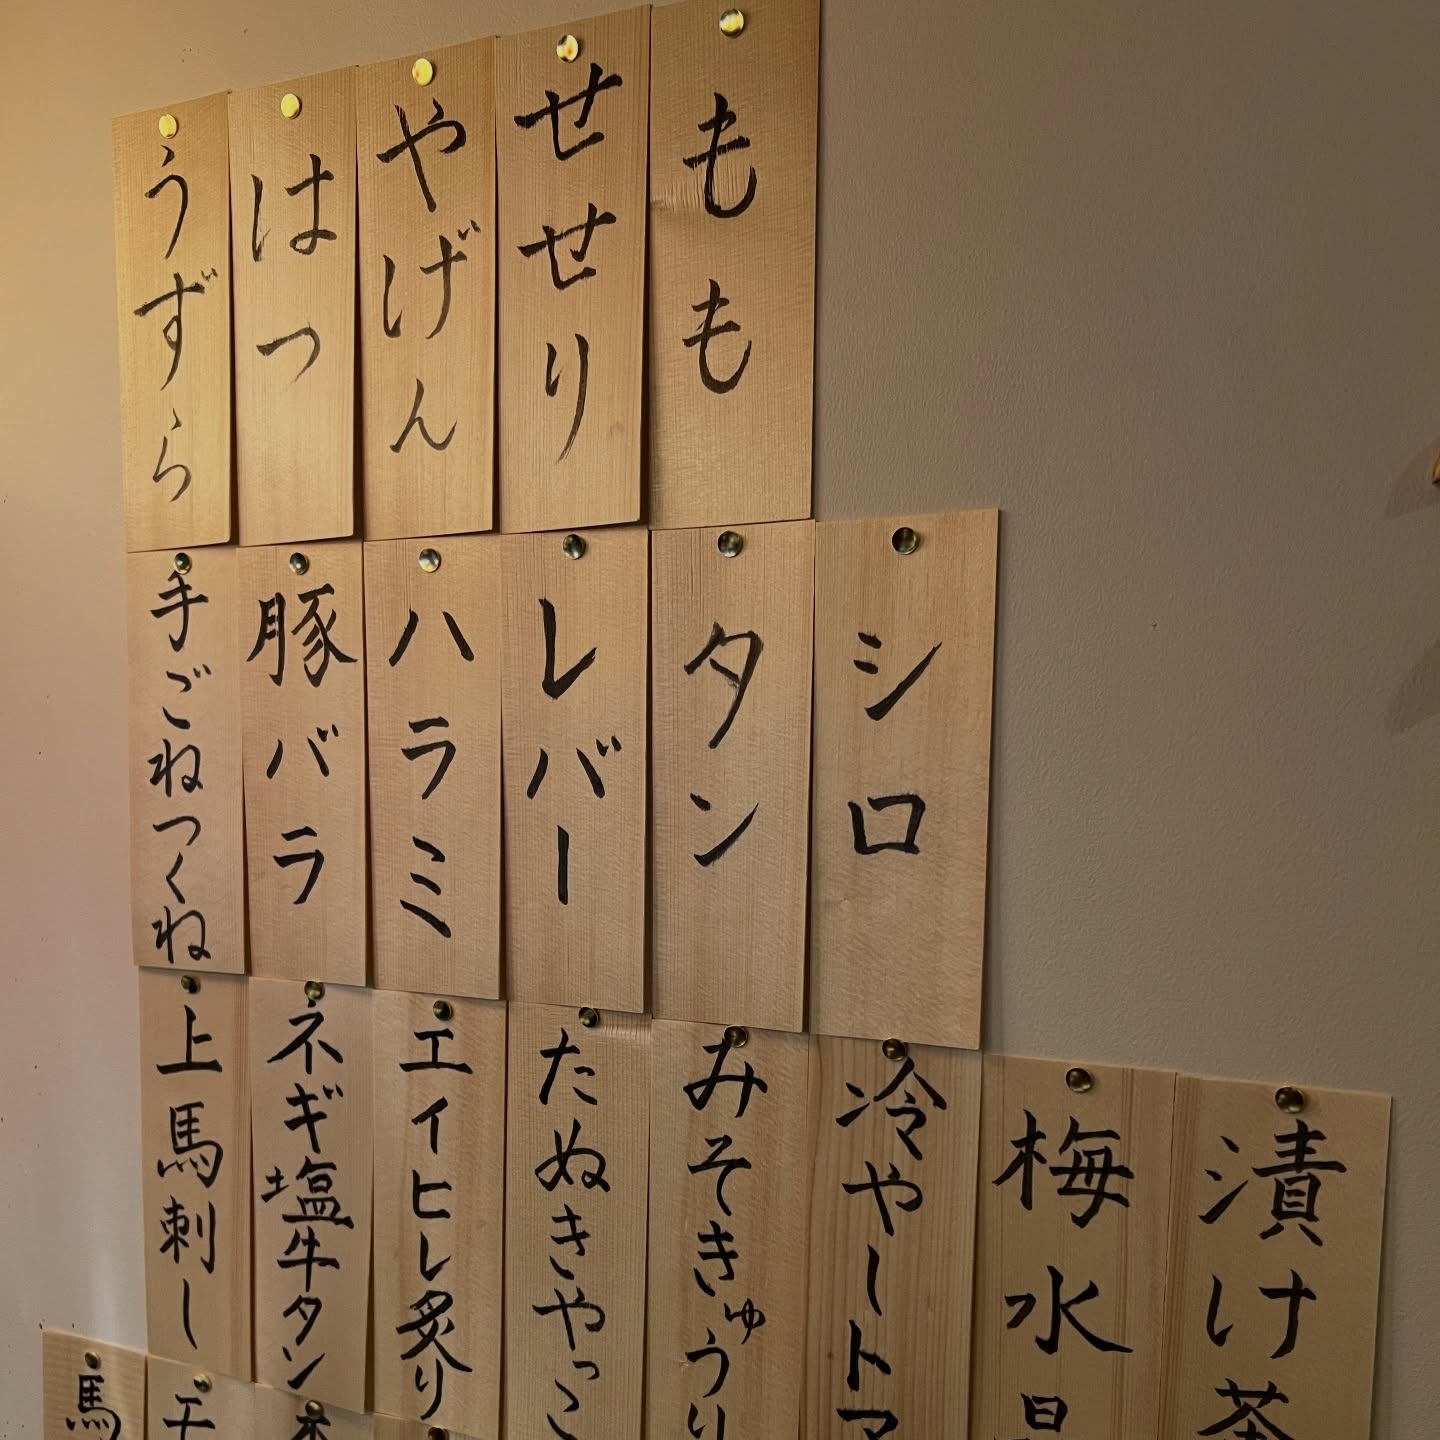 もも
せせり
やげん
はつ
うずら
シロ
タン
レバー
ハラミ
豚バラ
手ごねつくね
漬け茶
梅水
冷やしトマ
みそきゅうり
たぬきやっこ
エイヒレ炙り
ネギ塩牛タン
上馬刺し
馬